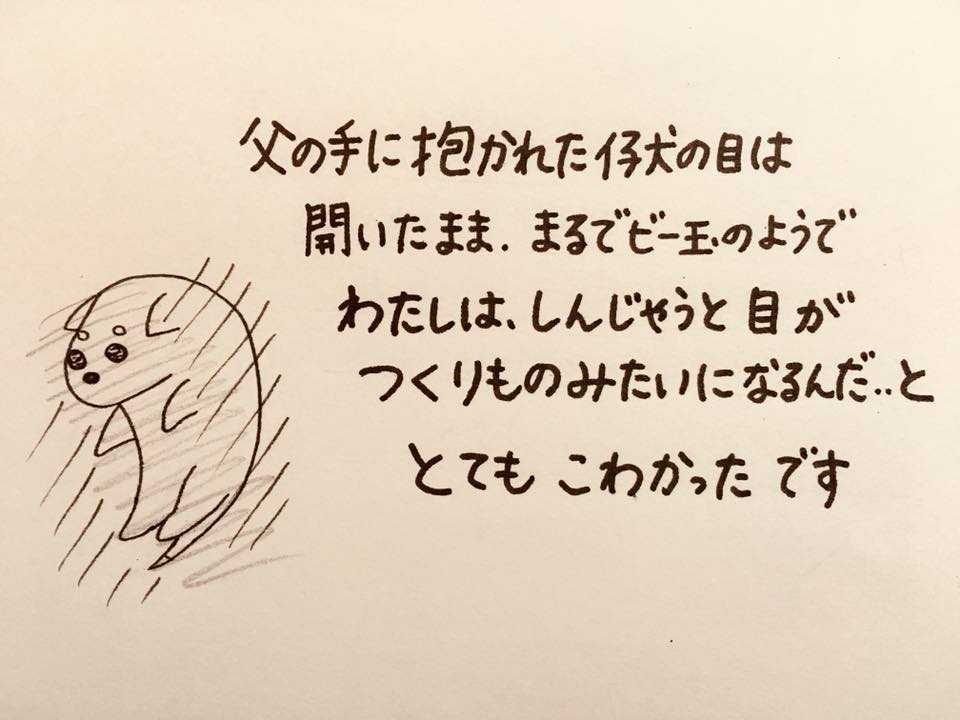 父の手に抱かれた仔犬の目は
開いたまま. まるでビー玉のようで
わたしは、しんじゃうと目が
つくりものみたいになるんだ‥と
とてもこわかったです